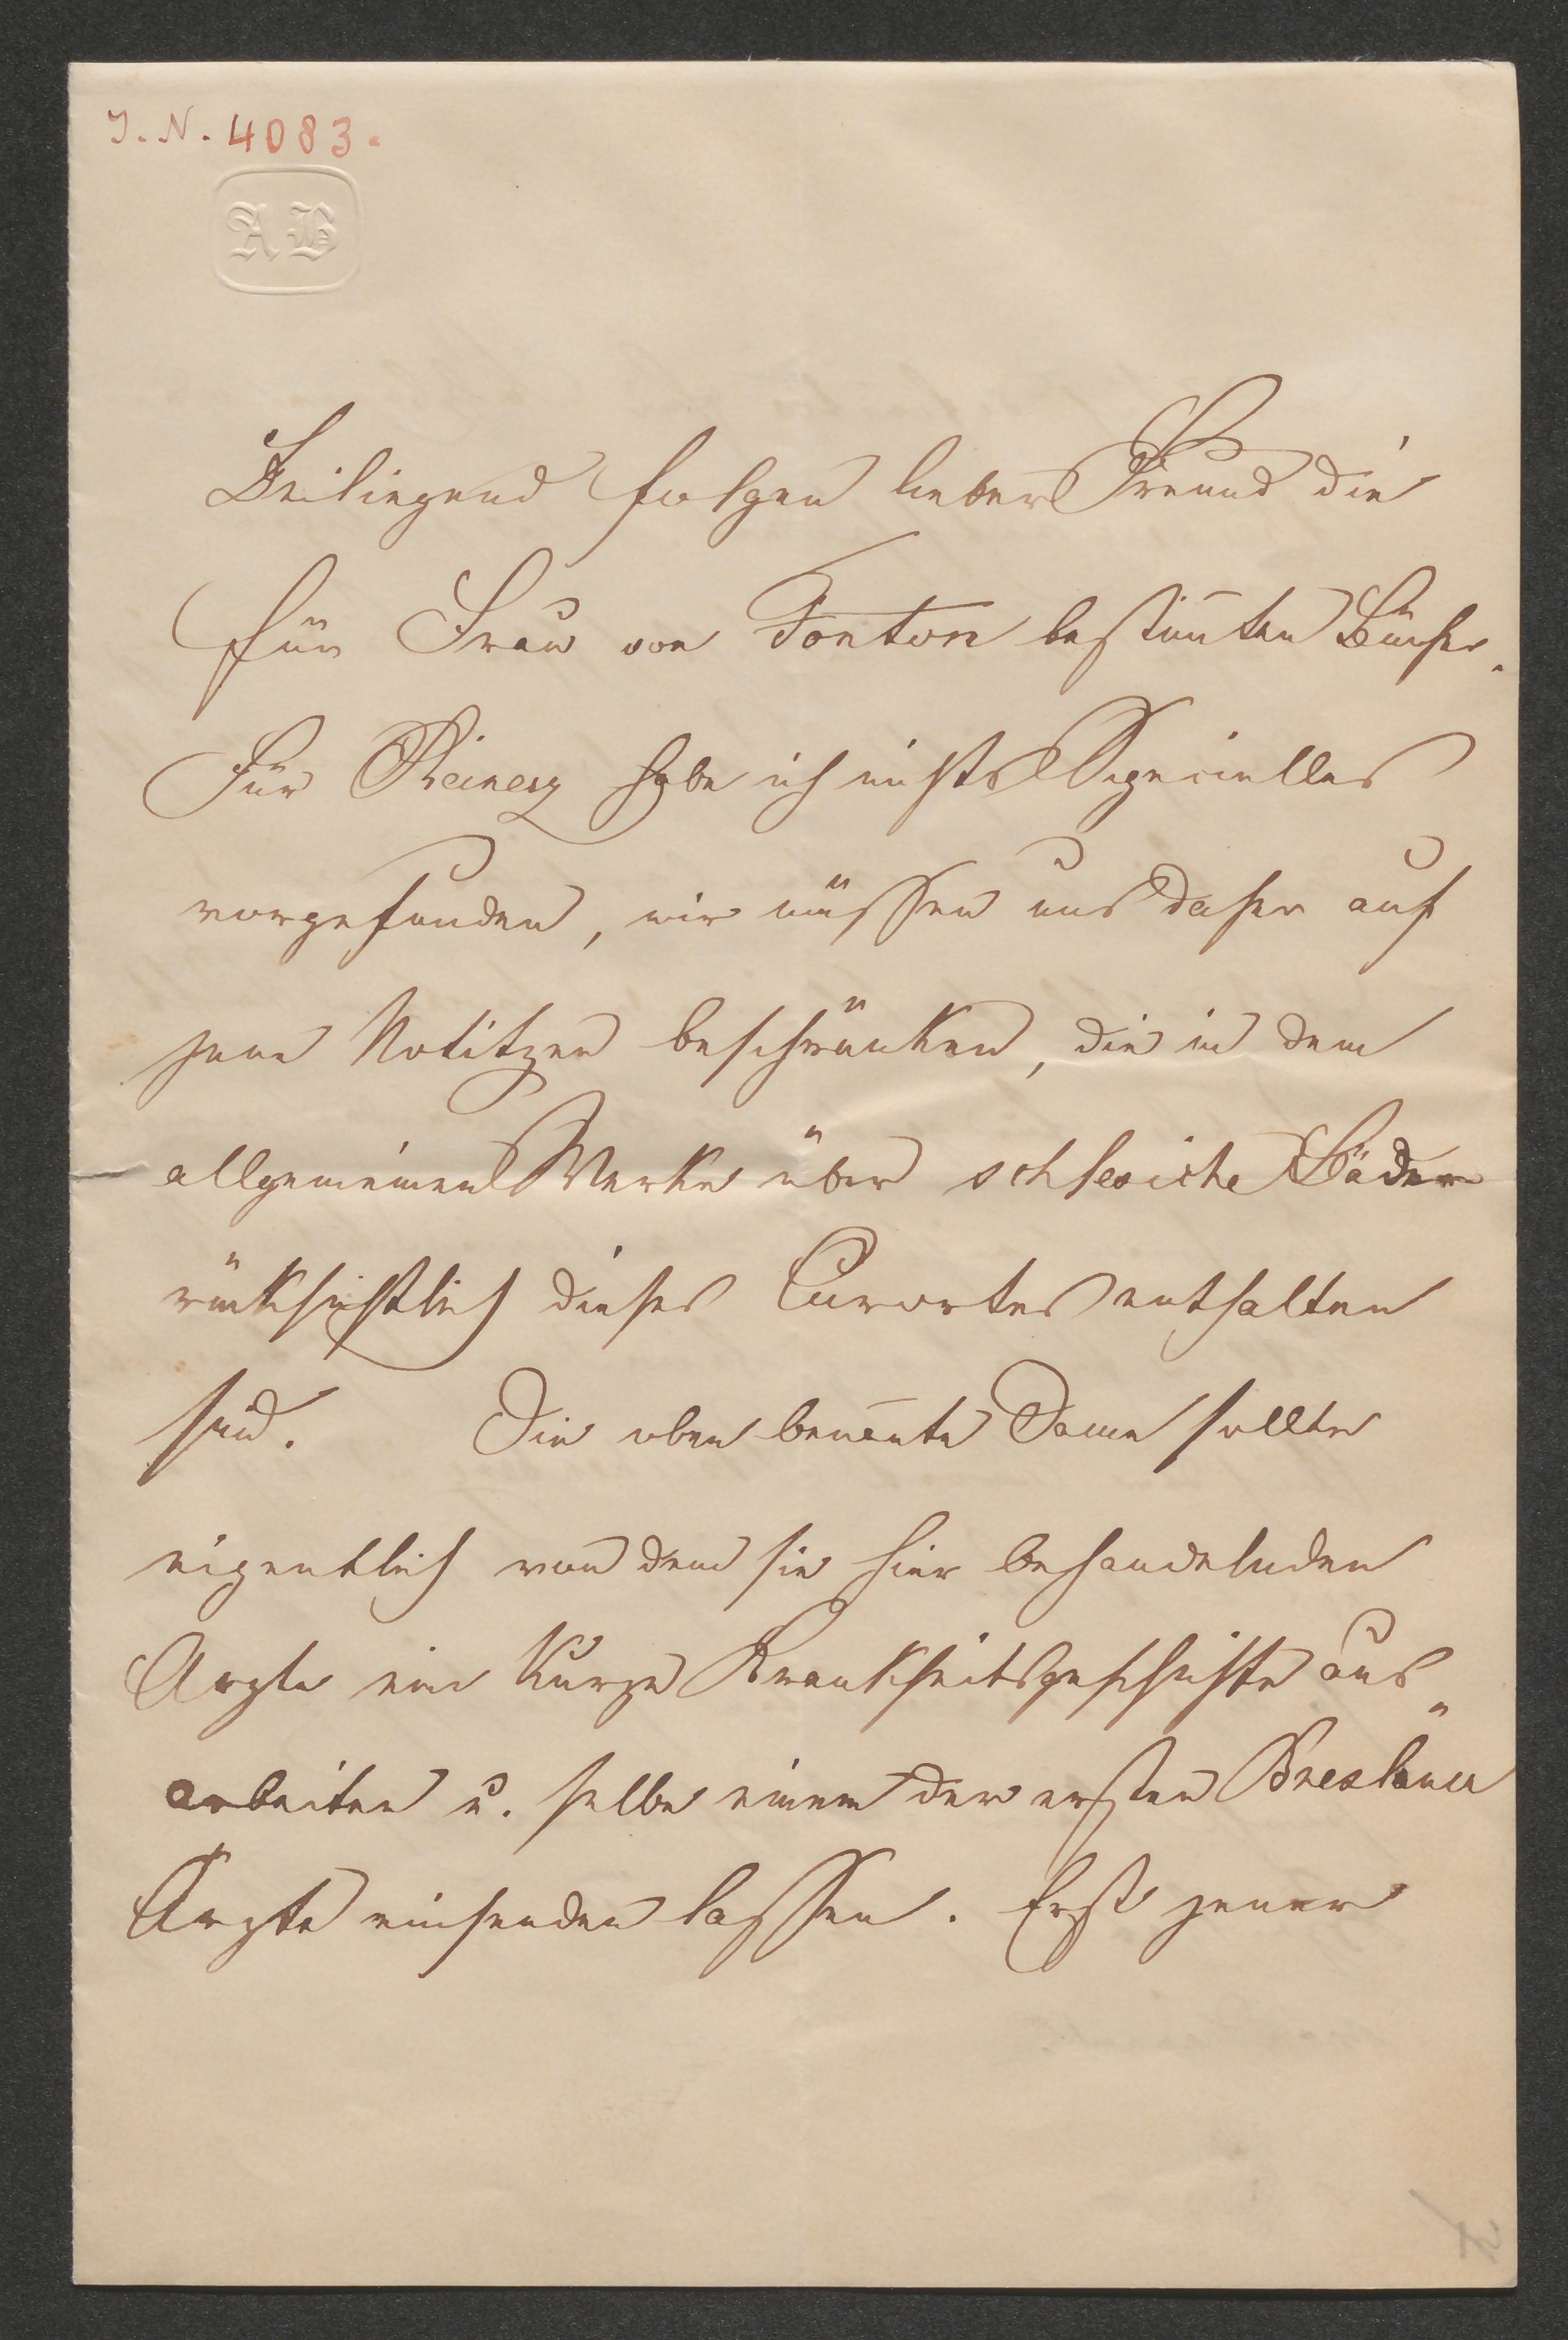 J. N. 4083.
AB
Beiliegend folgen lieber Freund die
für Frau von Fonton bestim̄ten Bücher.
Für Reinerz habe ich nichts Specielles
vorgefunden, wir müssen uns daher auf
jene Notitzen beschränken, die in dem
allgemeinen Werke über schlesiche Bäder
rücksichtlich dieses Curortes enthalten
sind. Die oben benan̄te Dame sollte
eigentlich von dem sie hier behandelnden
Arzte eine kurze Krankheitsgeschichte aus„
arbeiten u. selbe einem der ersten Breslauer
Ärzte einsenden lassen. Erst jener